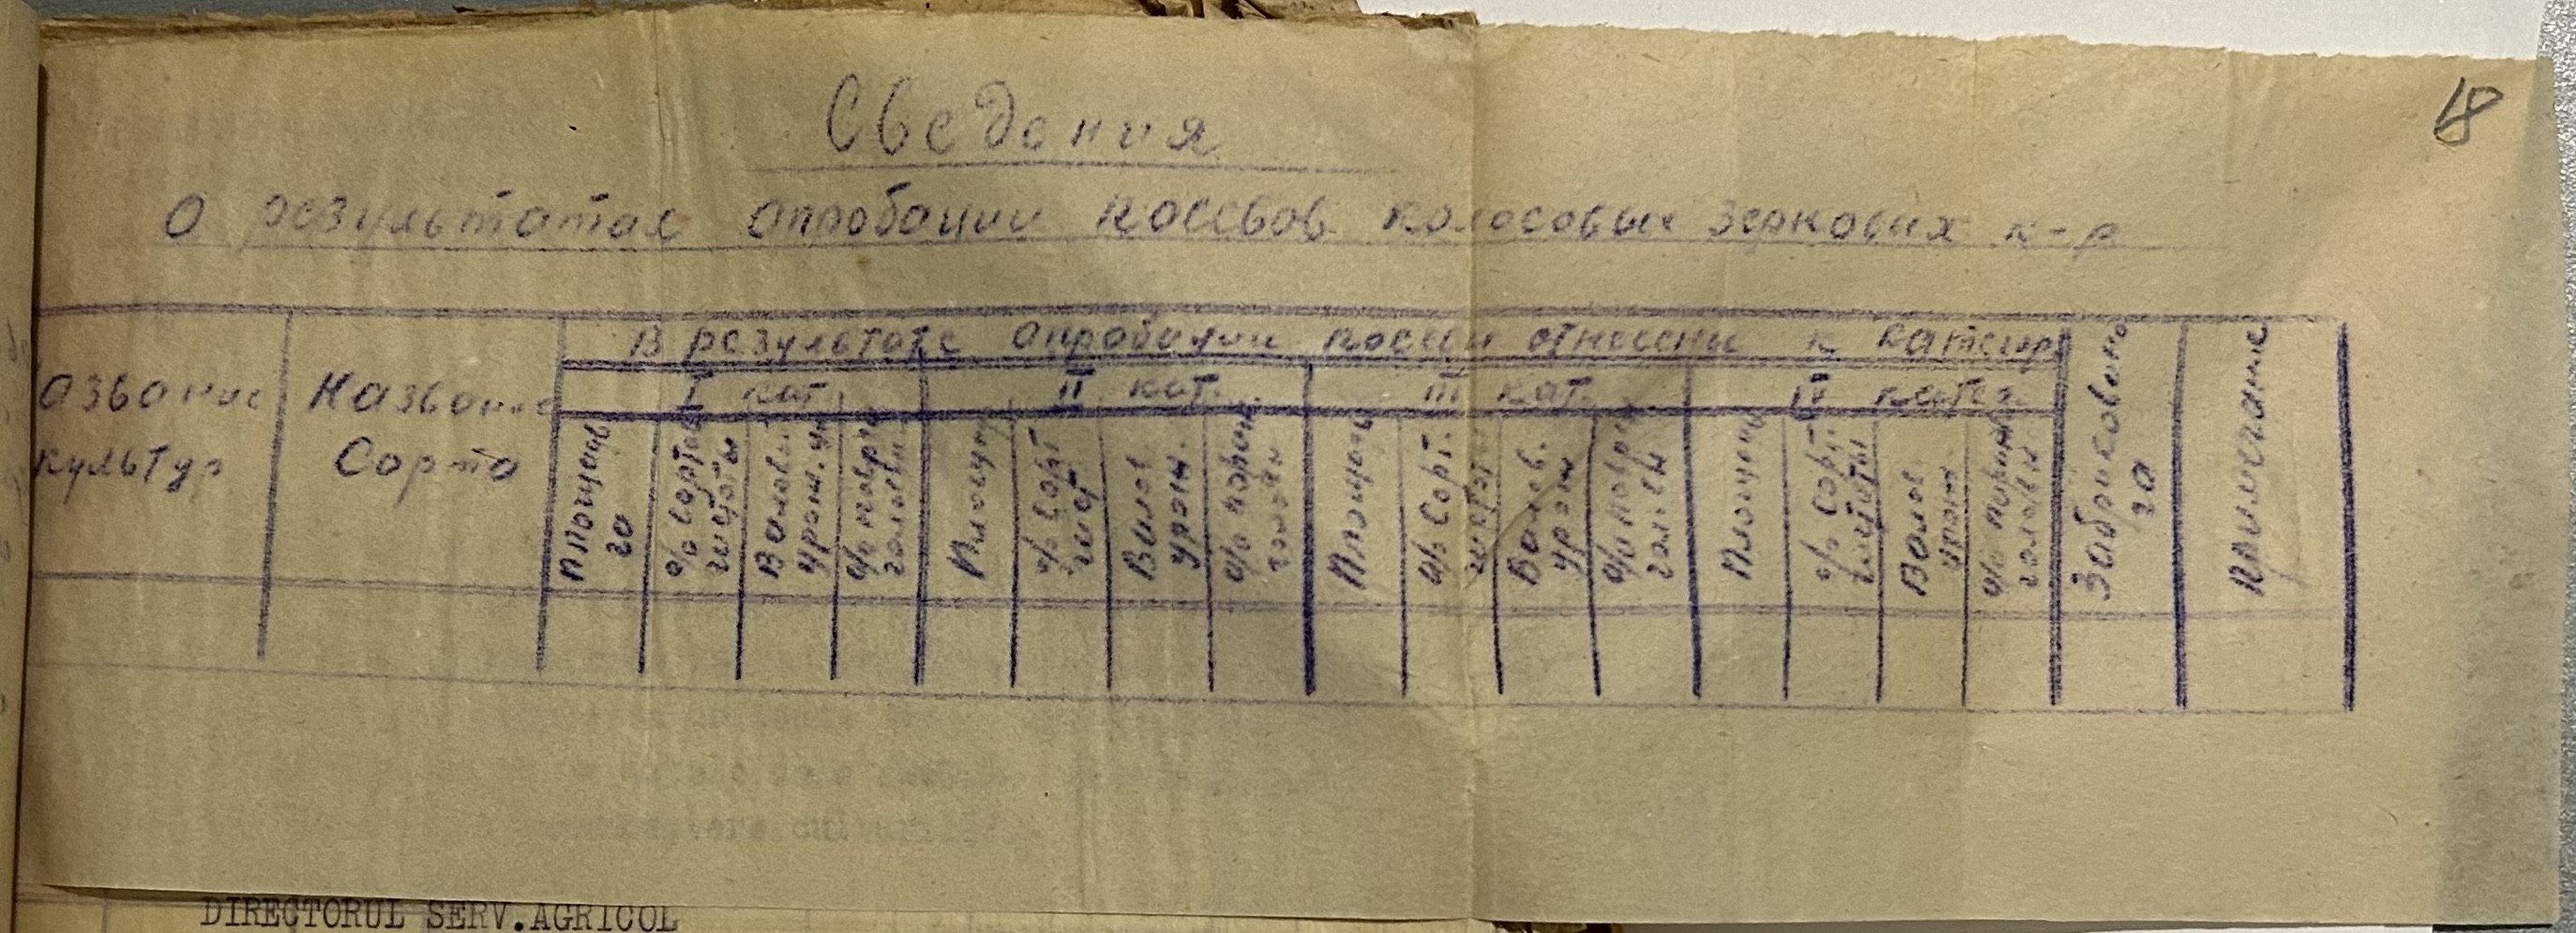 18
Сведения
О результатах апробации посевов колосовых зерновых к-р
азвание культур
Название Сорта
В результате апробации посевы отнесены к катег
I кат.
II кат.
III кат.
IV катег.
Площадь га
% Сорт. чистоты
Валов. урож.
% повр. головн.
Площадь
% Сорт. чист
Валов. урож.
% пораж. головн
Площадь
% Сорт. чистоты
Валов. урож
% повр. головн
Площадь
% Сорт. чистоты
Валов урож
% пораж головн
Забраковано га
Примечание
DIRECTORUL SERV.AGRICOL